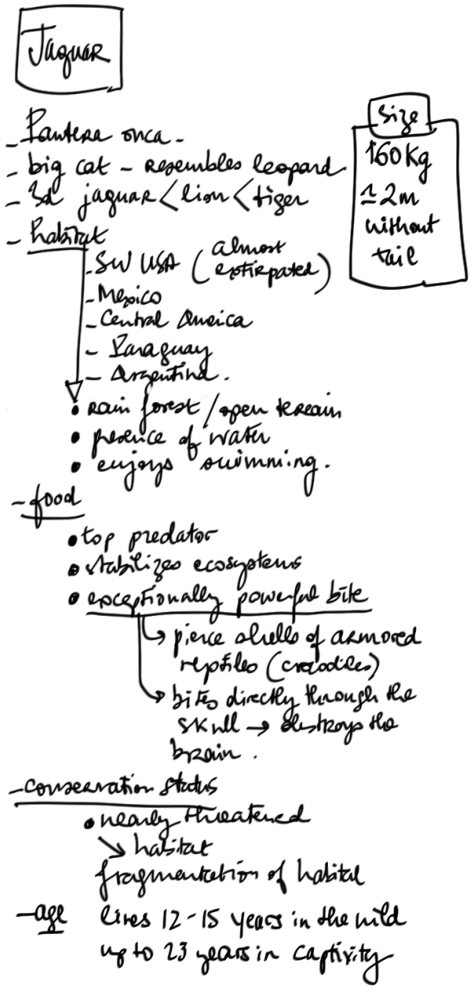 Jaguar
- Pantera onca.
- big cat - resembles leopard.
- 3d jaguar < lion < tiger
- habitat
- SW USA (almost extirpated)
- Mexico
- Central America
- Paraguay
- Argentina.
• rain forest / open terrain
• presence of water
• enjoys swimming.
Size
↑60 Kg
≃ 2m
without
tail
- food
• top predator
• stabilizes ecosystems
• exceptionally powerful bite
→ pierce shells of armored
reptiles (crocodiles)
→ bites directly through the
skull → destroys the
brain.
- conservation status
• nearly threatened
↘ habitat
fragmentation of habitat
- age lives 12-15 years in the wild
up to 23 years in captivity